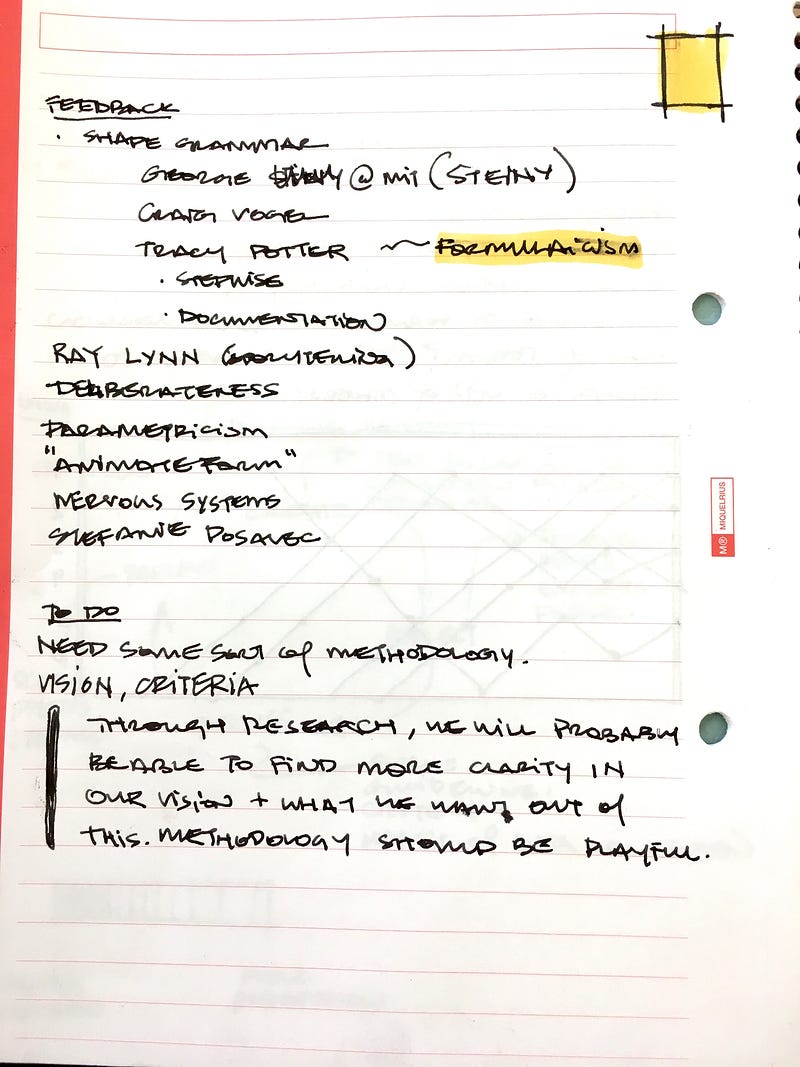 FEEDBACK
· SHAPE GRAMMAR
GEORGE @ MIT (STEINY)
CRAIG VOGEL
TRACY POTTER ~ FORMULAICISM
· STEPWISE
· DOCUMENTATION
RAY LYNN
DELIBERATENESS
PARAMETRICISM
"ANIMATE FORM"
NERVOUS SYSTEMS
STEFANIE POSAVEC
TO DO
NEED SOME SORT OF METHODOLOGY.
VISION, CRITERIA
THROUGH RESEARCH, WE WILL PROBABLY
BE ABLE TO FIND MORE CLARITY IN
OUR VISION + WHAT WE WANT OUT OF
THIS. METHODOLOGY SHOULD BE PLAYFUL.
M® MIQUELRIUS